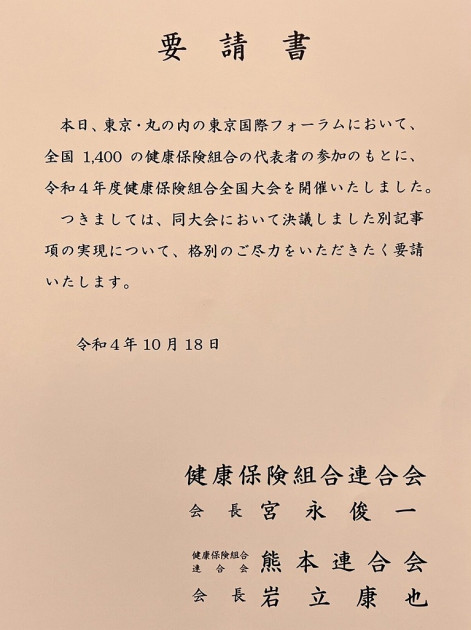 要請書
本日、東京・丸の内の東京国際フォーラムにおいて、
全国 1,400 の健康保険組合の代表者の参加のもとに、
令和４年度健康保険組合全国大会を開催いたしました。
つきましては、同大会において決議しました別記事
項の実現について、格別のご尽力をいただきたく要請
いたします。
令和４年 10 月 18 日
健康保険組合連合会
会長 宮永俊一
健康保険組合
連合会 熊本連合会
会長 岩立康也